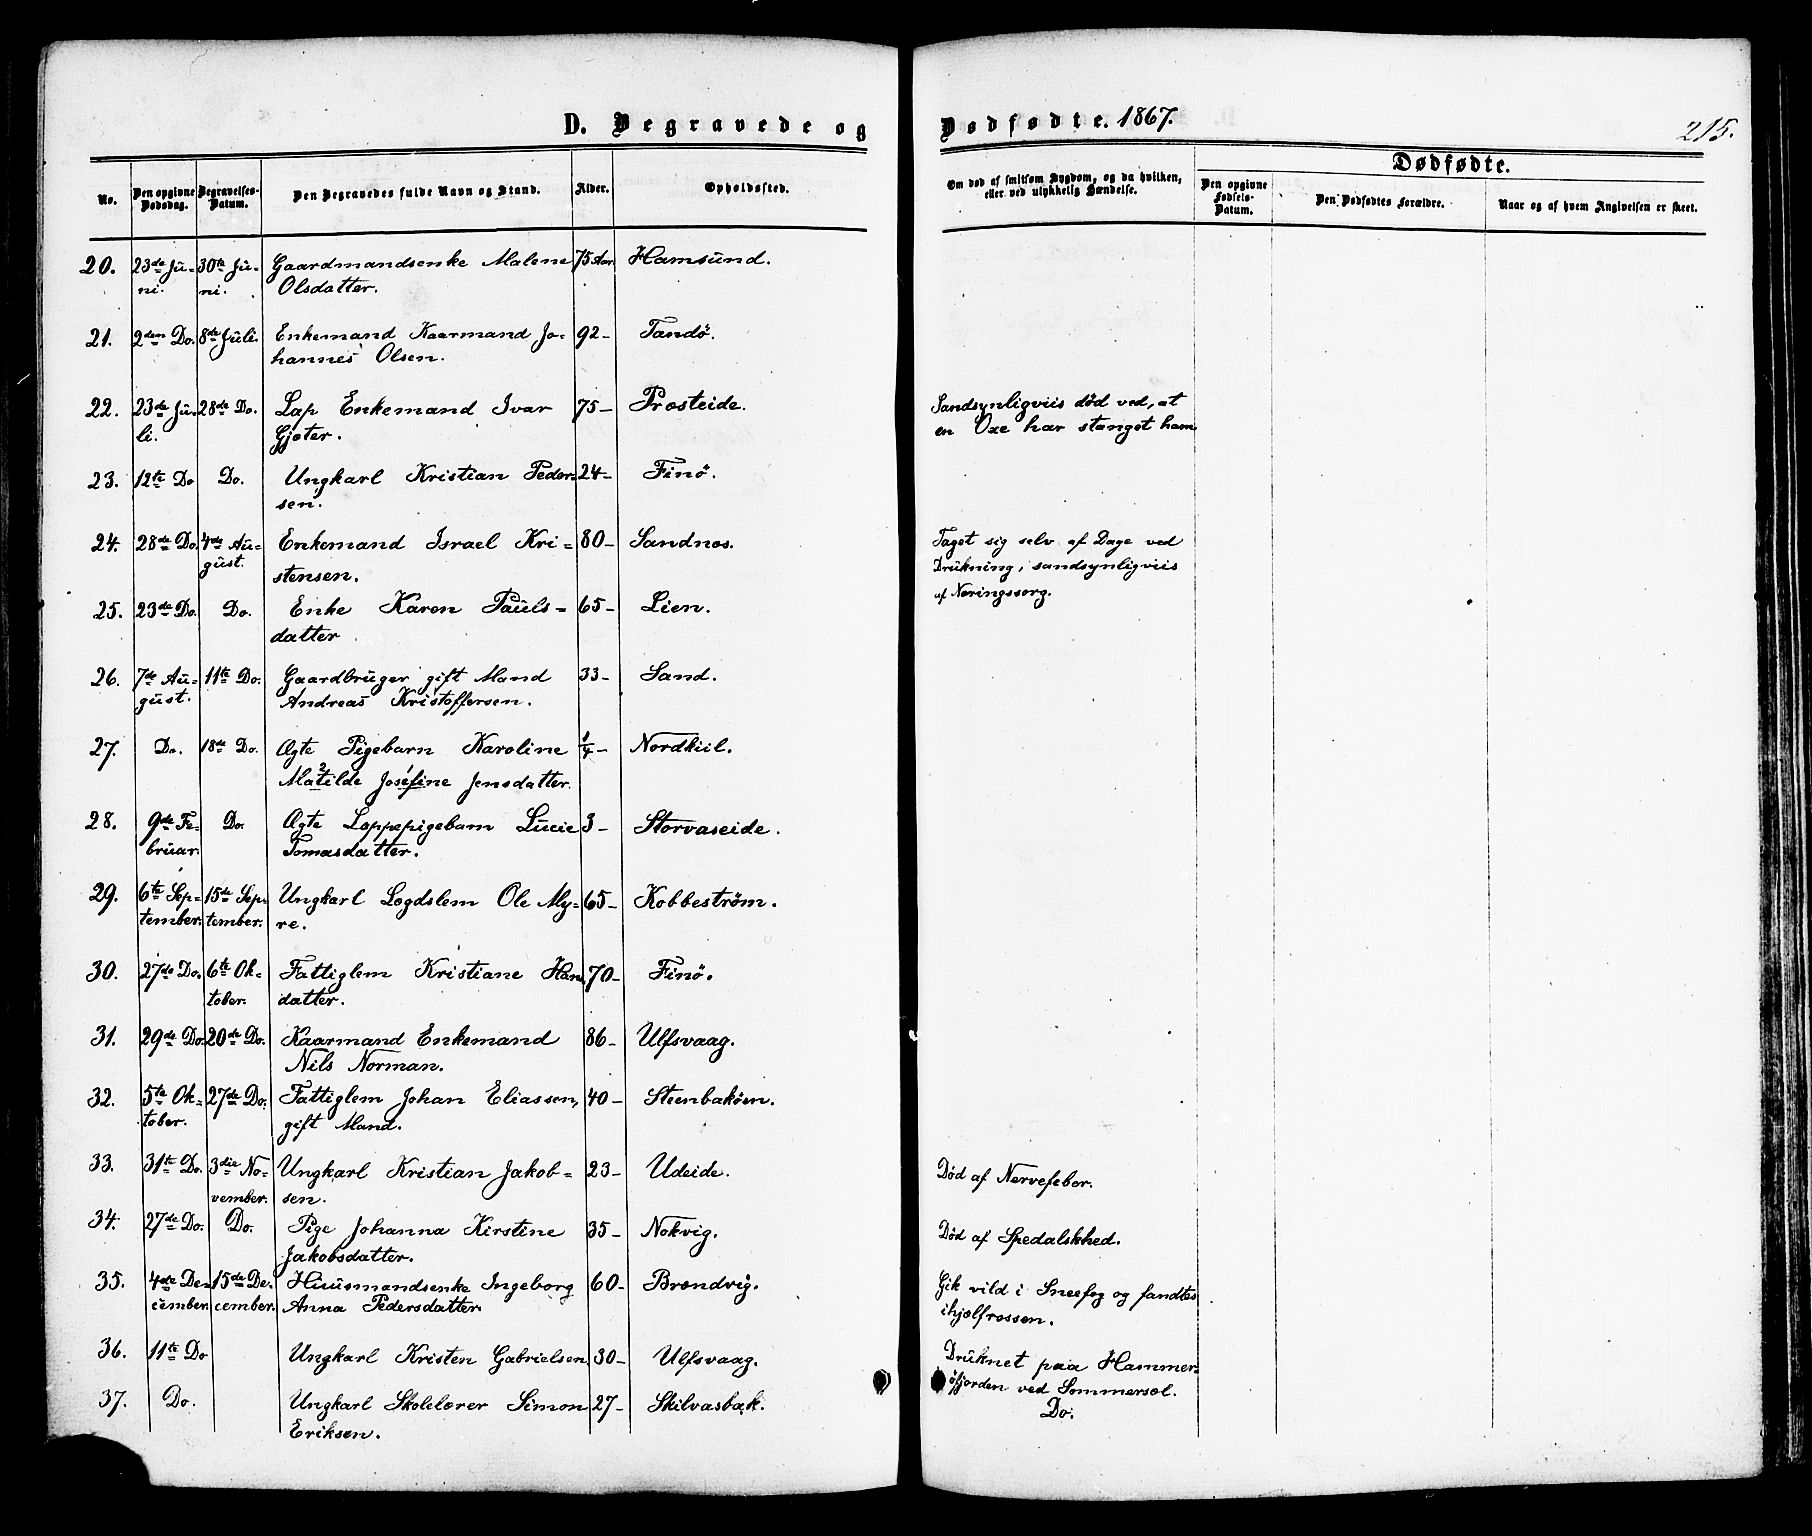 D. Begravede og
Dødfødte. 1867.
215.
No.
Den opgivne Dødsdag.
Begravelses-Datum.
Den Begravedes fulde Navn og Stand.
Alder.
Opholdssted.
Om død af smitsom Sygdom, og da hvilken,
eller ved ulykkelig Hændelse.
Dødfødte.
Den opgivne Fødsels-Datum.
Den Dødfødtes Forældre.
Naar og af hvem Angivelsen er skeet.
20. 23de Ju- 30te Ju- Gaardmandsenke Malene 75 Aar Hamsund.
ni. ni. Olsdatter.
21. 2den Do. 8de Juli. Enkemand Kaarmand Jo- 92 – Tandö.
hannes Olsen.
22. 23de Ju- 28de Do. Lap Enkemand Ivar 75 – Præsteide. Sandsynligviis död ved, at
li. Gjæter. en Oxe har stanget ham.
23. 12te Do Do. Ungkarl Kristian Peder- 24 – Finö.
sen.
24. 28de Do. 4de Au- Enkemand Israel Kri- 80 – Sandnæs. Taget sig selv af Dage ved
gust. stensen. Drukning, sandsynligviis
af Næringssorg.
25. 23de Do. Do. Enke Karen Pauls- 65 – Lien.
datter
26. 7de Au- 11te Do. Gaardbruger gift Mand 33 – Sand.
gust. Andreas Kristoffersen.
27. Do. 18de Do. Ægte Pigebarn Karoline 1/4 – Nordkiil.
2 1
Matilde Josefine Jensdatter.
28. 9de Fe- Do. Ægte Lappepigebarn Lucie 3 – Storvaseide.
bruar. Tomasdatter.
29. 6te Sep- 15de Sep- Ungkarl Lægdslem Ole My- 65 – Kobbeström.
tember. tember. re.
30. 27de Do. 6te Ok- Fattiglem Kristiane Hans 70 – Finö.
tober. datter.
31. 29de Do. 20de Do. Kaarmand Enkemand 86 – Ulfsvaag.
Nils Norman.
32. 5te Ok- 27de Do. Fattiglem Johan Eliassen, 40 – Steenbakken.
tober. gift Mand.
33. 31te Do. 3die No- Ungkarl Kristian Jakob- 23 – Udeide. Död af Nervefeber.
vember. sen.
34. 27de Do. Do. Pige Johanna Kirstine 35 – Nokvig. Död af Spedalskhed.
Jakobsdatter.
35. 4de De- 15de De- Huusmandsenke Ingeborg 60 – Brendvig. Gik vild i Sneefog og fandtes
cember. cember. Anna Pedersdatter ihjelfrossen.
36. 11te Do Ungkarl Kristen Gabrielsen 30 – Ulfsvaag. Druknet paa Hammer-
öfjorden ved Sommersæl.
37. Do. Ungkarl Skolelærer Simon 27 – Skilvasbak. Do.
Eriksen.